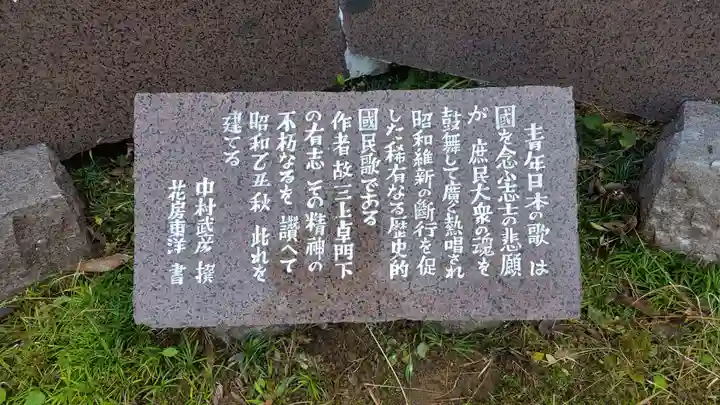 青年日本の歌 は
國を念ふ志士の悲願
が 庶民大衆の魂を
鼓舞して廣く熱唱され
昭和維新の斷行を促
した稀有なる歴史的
國民歌である
作者 故 三上卓門下
の有志 その精神の
不朽なるを 讃へて
昭和乙丑秋 此れを
建てる
中村武彦 撰
花房東洋 書